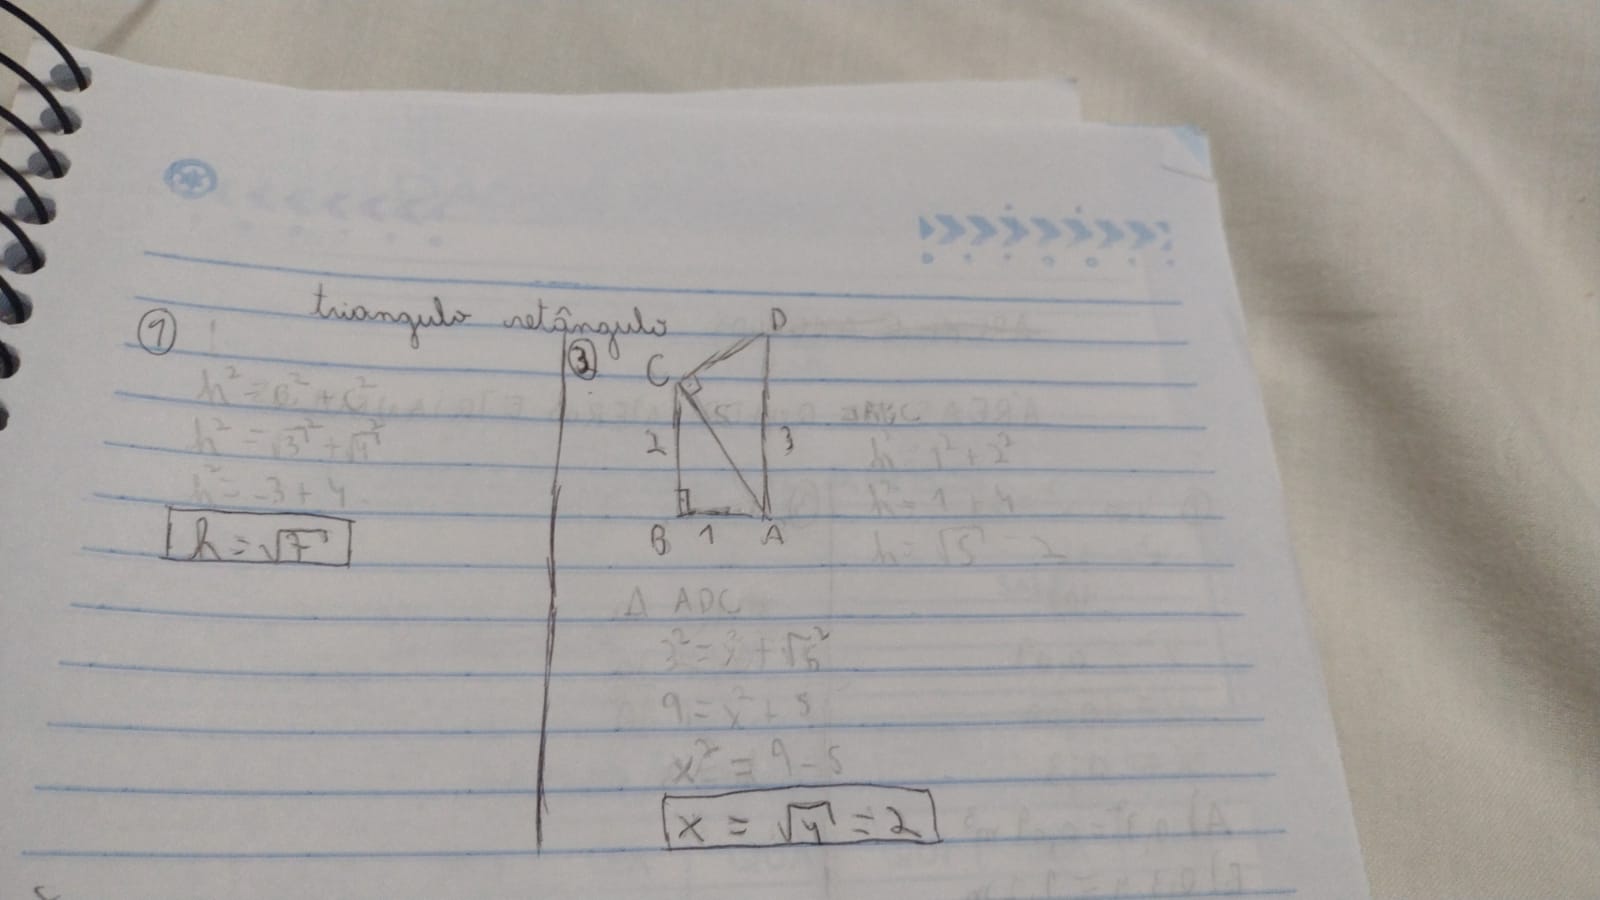 triangulo retângulo
①
h² = B² + C²
h² = √3² + √4²
h² = 3 + 4
h = √7
③
D
C
5
2
3
B 1 A
ABC
h² = 1² + 2²
h² = 1 + 4
h = √5
Δ ADC
3² = + √5²
9 = x² + 5
x² = 9 - 5
x = √4 = 2